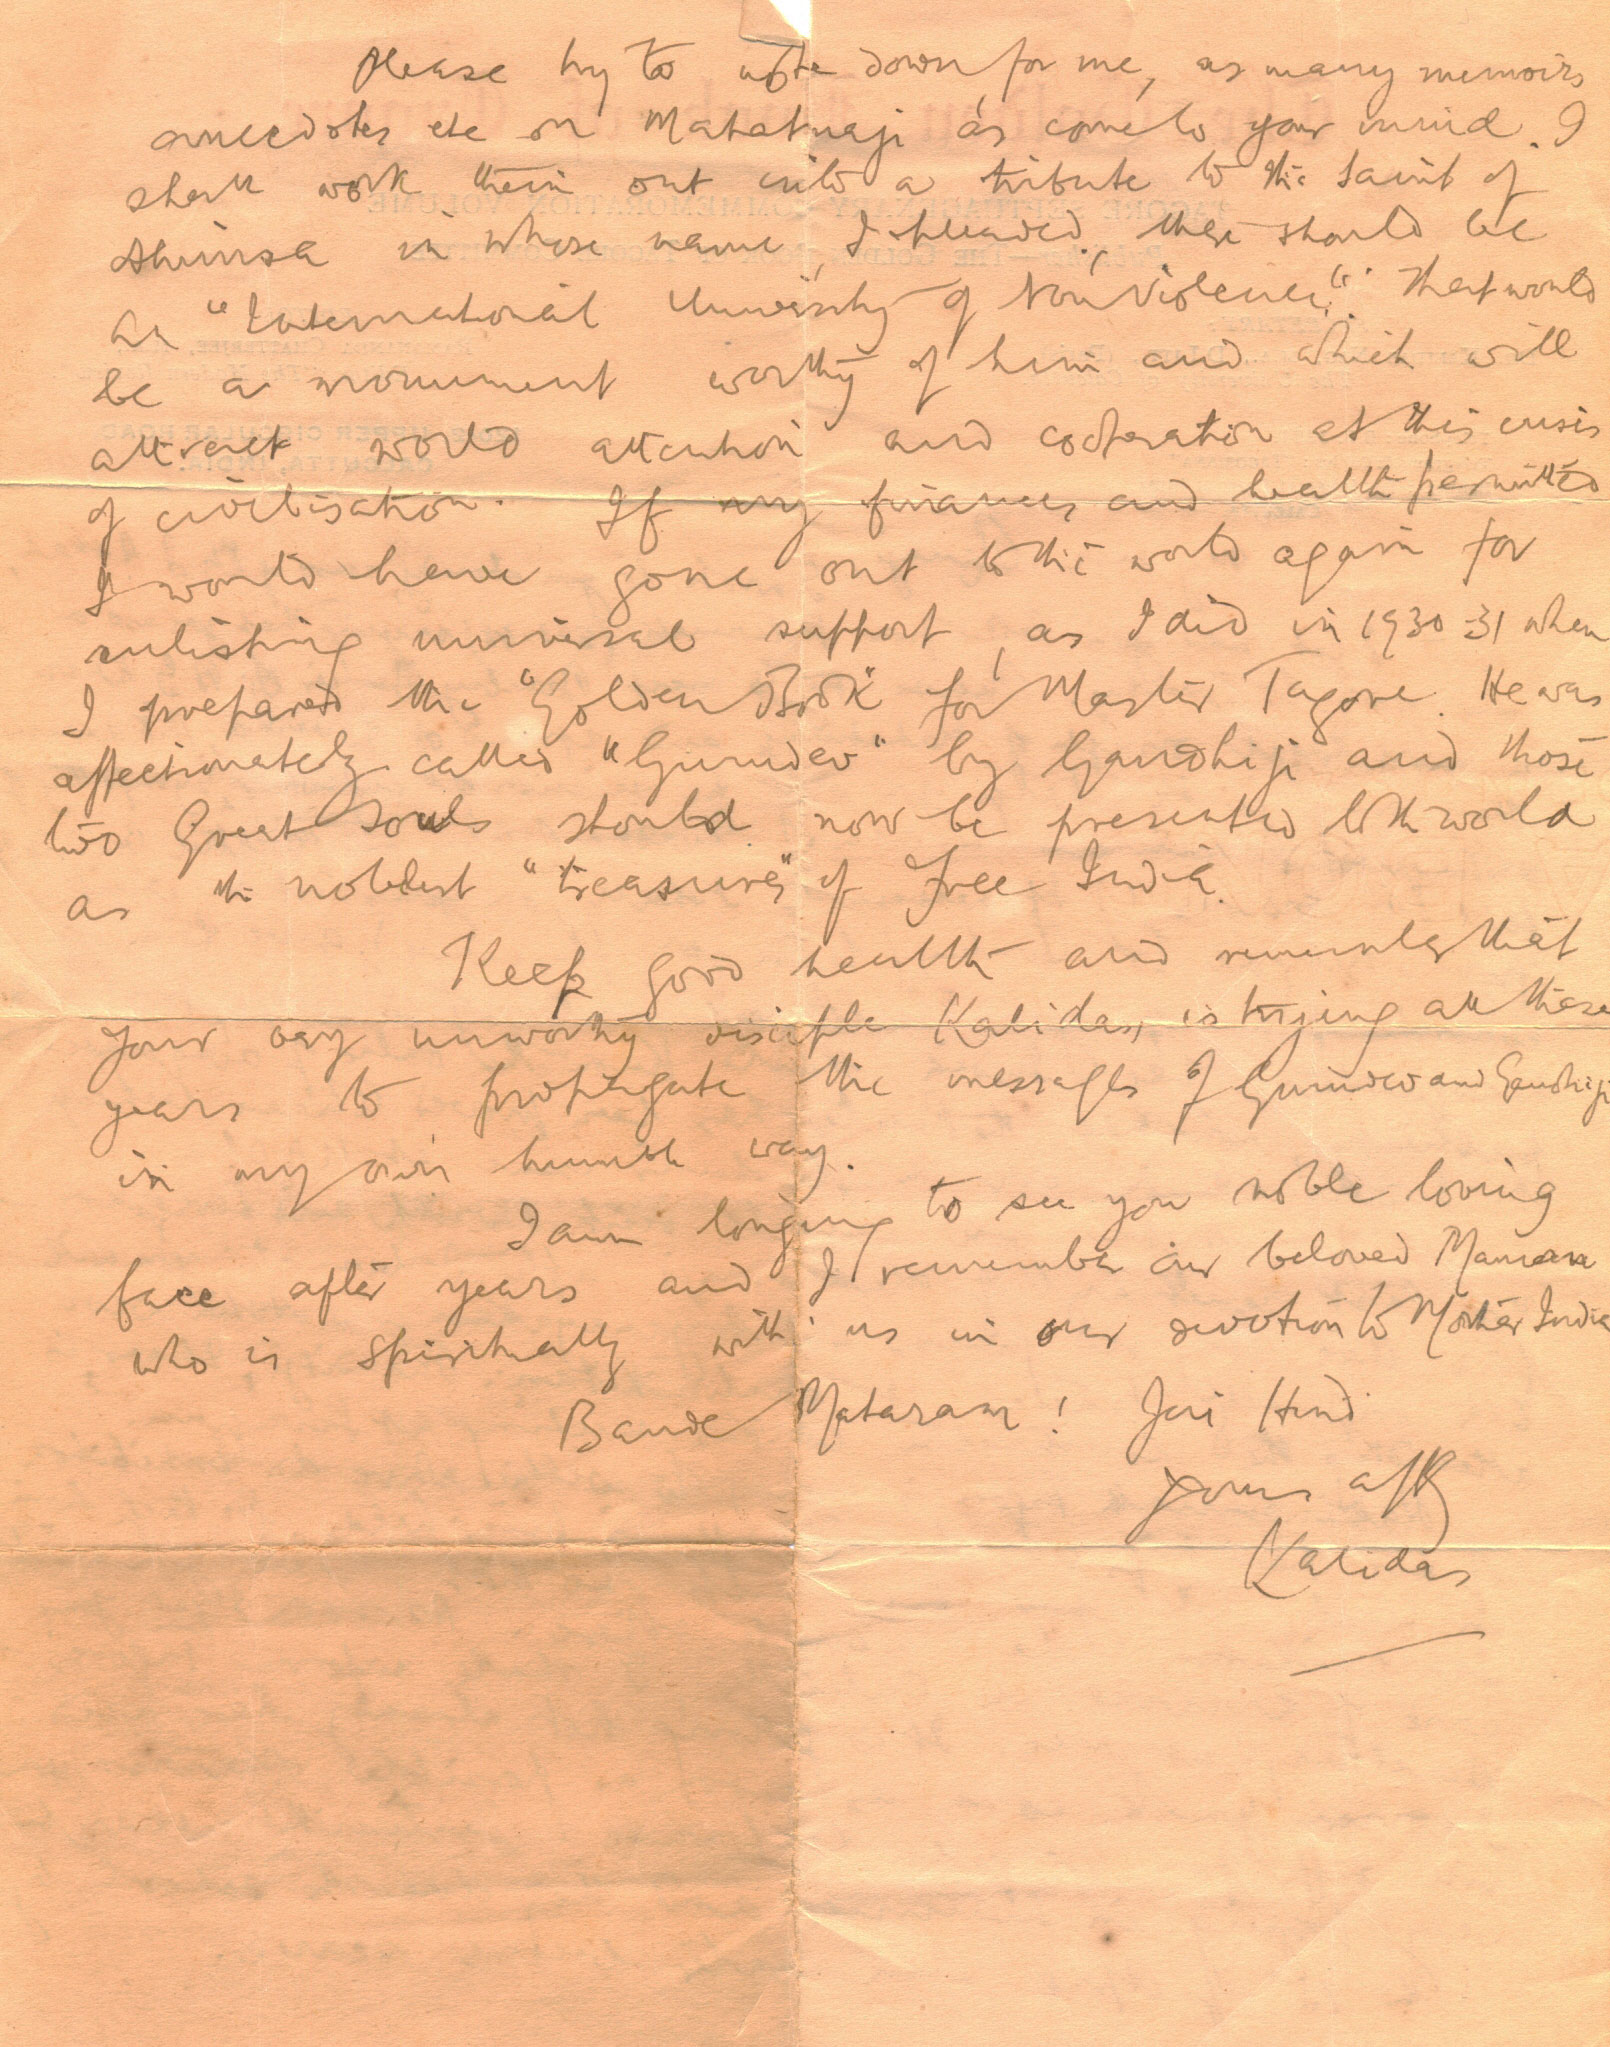 Please try to note down for me, as many memoirs
anecdotes etc on Mahatmaji as come to your mind. I
shall work them out into a tribute to the Saint of
Ahimsa in whose name, I pleaded, there should be
an "International University of Non Violence". That would
be a monument worthy of him and which will
attract world attention and cooperation at this crisis
of civilisation. If my finances and health permitted
I would have gone out to the world again for
enlisting universal support, as I did in 1930-31 when
I prepared the "Golden Book" for Master Tagore. He was
affectionately called "Gurudev" by Gandhiji and those
two Great Souls should now be presented to the world
as the noblest "treasures" of Free India.
Keep good health and remember that
your very unworthy disciple Kalidas, is trying all these
years to propagate the messages of Gurudev and Gandhiji
in my own humble way.
I am longing to see you noble loving
face after years and I remember our beloved
who is spiritually with us in our devotion to Mother India
Bande Mataram! Jai Hind
Yours affly
Kalidas
TAGORE SEPTUAGENARY COMMEMORATION VOLUME
UPPER CIRCULAR ROAD
CALCUTTA, INDIA